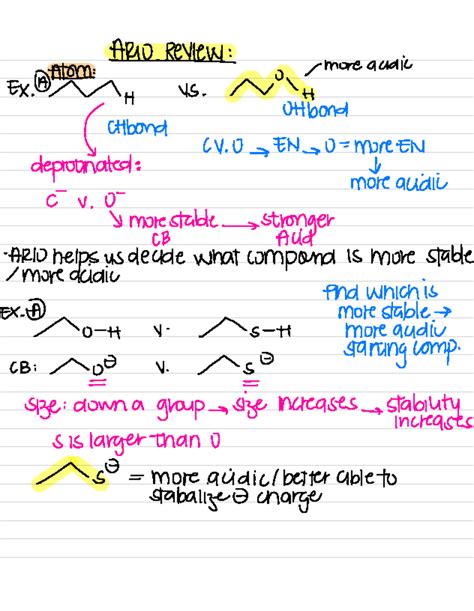 ARIO REVIEW:
Ex. A Atom: H vs. O H more acidic
CH bond OH bond
C v. O → EN → O = more EN
deprotonated: more acidic
C⁻ v. O⁻
more stable → stronger
CB Acid
-ARIO helps us decide what compound is more stable
/more acidic
Ex. A O-H v. S-H
find which is
more stable →
more acidic
starting comp.
CB: O⊖ v. S⊖
size: down a group → size increases → stability
increases
S is larger than O
S⊖ = more acidic/better able to
stabalize ⊖ charge